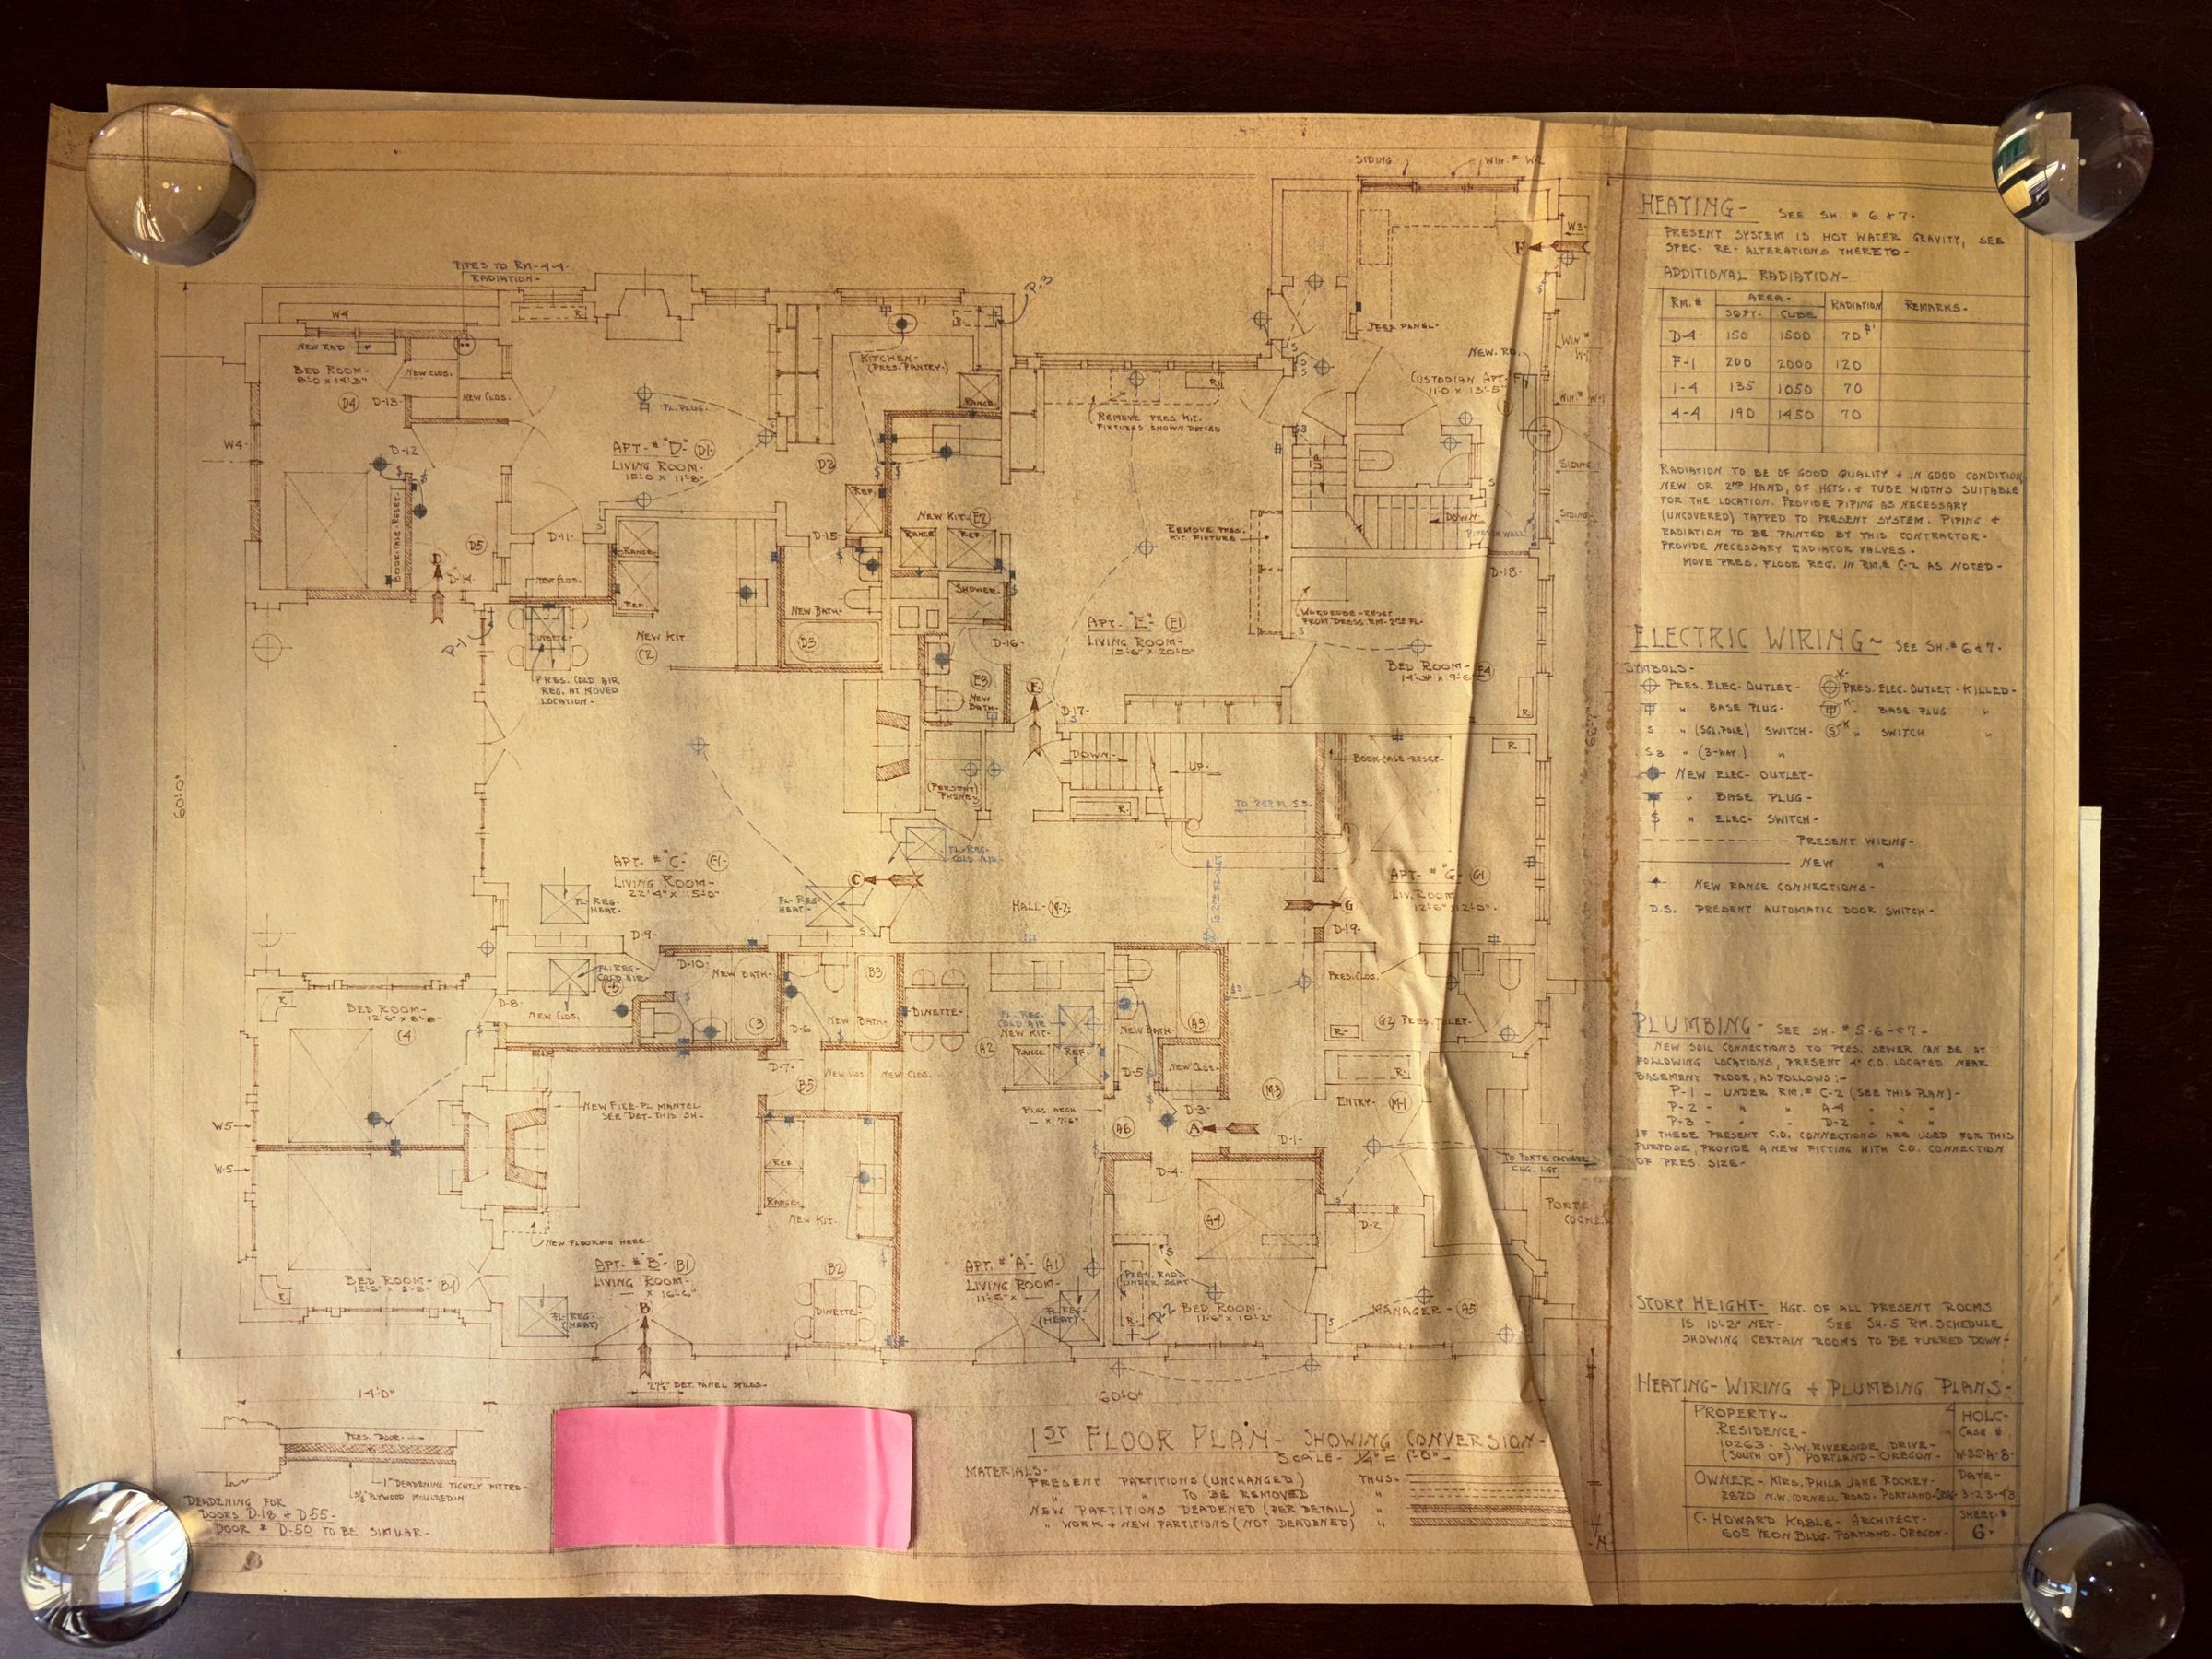 SIDING
WIN. # W-2
W3-
F
PIPES TO RM-4-4-
RADIATION-
P-3
W4
R.
NEW RAD
BED ROOM-
8'-0 X 14'-3"
D4
D-13-
NEW CLOS.
NEW CLOS.
FL. PLUG.
KITCHEN-
(PRES. PANTRY-)
RANGE
PRES. PANEL-
NEW. RD.
WIN.#
CUSTODIAN APT-
11-0 X 13'-5"
WIN.# W-1
R.
REMOVE PRES. KIT.
FIXTURES SHOWN DOTTED
W4-
D-12
APT- # "D"- D1-
LIVING ROOM-
15'-0 X 11'-8"
D2
REF.
BOOK CASE-RESET-
D5
D
D-14
D-11-
RANGE
REF.
NEW CLOS.
D-15-
NEW KIT. E2
RANGE
REF.
REMOVE PRES.
KIT. FIXTURE
UP
DOWN
PIPES IN WALL
SIDING
SIDING
D-18-
SHOWER-
NEW BATH-
D3
D-16-
WARDROBE-RESET
FROM DRESS. RM-2ND FL-
P-1
DINETTE-
NEW KIT.
C2
PRES. COLD AIR
REG. AT MOVED
LOCATION-
E3
NEW
BATH-
APT. "E"- E1
LIVING ROOM-
15'-6" X 20'-0"
E
D-17-
BED ROOM- E4
R.
60'-0"
DOWN-
UP-
R.
BOOK CASE-RESET-
R.
(PRESENT)
PHONE-
TO 2ND FL. S3.
FL-REG-
COLD AIR-
APT- # "C"-
LIVING ROOM-
22'-4" X 15'-0"
C
FL-REG-
HEAT-
FL-REG-
HEAT-
HALL- M-2
G
APT- # "G"- G1
LIV. ROOM
12'-6" X 12'-0"-
D-19-
D-9-
D-10-
NEW BATH-
FL-REG-
COLD AIR-
B3
PRES. CLOS.
R.
BED ROOM-
12'-6" X 8'-8"-
C4
D-8-
NEW CLOS.
C3
D-6-
NEW BATH-
DINETTE-
A2
FL-REG-
COLD AIR-
NEW KIT-
RANGE
REF-
NEW BATH-
A3
R-
G2 PRES. TOILET-
D-7-
B5
NEW CLOS
NEW CLOS.
D-5-
NEW CLOS-
M3
R.
ENTRY- M-1
NEW FIRE-PL MANTEL
SEE DET-THIS SH-
PLAS. ARCH
A6
D-3-
A
D-1-
W5
W-5
REF
RANGE
NEW KIT.
D-4-
A4
TO PORTE COCHERE
CLG. LGT.
PORTE
COCHER
D-2
NEW FLOORING HERE-
BED ROOM-
B4
R.
APT- # "B"- B1
LIVING ROOM-
X 16'-6"
B
B2
DINETTE-
APT. # "A"- A1
LIVING ROOM-
FL-REG-
(HEAT)
FL-REG-
(HEAT)
PRES. RAD.
UNDER SEAT
R-
P-2
BED ROOM-
11'-6" X 10'-2"
MANAGER- A5
27½" BET. PANEL STILES-
14'-0"
60'-0"
PRES. DOOR-
1" DEADENING TIGHTLY FITTED-
3/8" PLYWOOD MOULDED IN
DEADENING FOR
DOORS D-18 & D-55-
DOOR # D-50 TO BE SIMILAR-
1ST FLOOR PLAN- SHOWING CONVERSION-
SCALE- 1/4" = 1'-0"-
MATERIALS-
PRESENT PARTITIONS (UNCHANGED) THUS-
" " TO BE REMOVED "
NEW PARTITIONS DEADENED (PER DETAIL) "
" WORK & NEW PARTITIONS (NOT DEADENED) "
HEATING- SEE SH. # 6 & 7-
PRESENT SYSTEM IS HOT WATER GRAVITY, SEE
SPEC- RE- ALTERATIONS THERETO-
ADDITIONAL RADIATION-
RM.# AREA- RADIATION REMARKS-
SQFT- CUBE
D-4- 150 1500 70
F-1 200 2000 120
1-4 135 1050 70
4-4 190 1450 70
RADIATION TO BE OF GOOD QUALITY & IN GOOD CONDITION,
NEW OR 2ND HAND, OF HGTS. & TUBE WIDTHS SUITABLE
FOR THE LOCATION. PROVIDE PIPING AS NECESSARY
(UNCOVERED) TAPPED TO PRESENT SYSTEM. PIPING &
RADIATION TO BE PAINTED BY THIS CONTRACTOR-
PROVIDE NECESSARY RADIATOR VALVES-
MOVE PRES. FLOOR REG. IN RM.# C-2 AS NOTED-
ELECTRIC WIRING~ SEE SH.# 6 & 7-
SYMBOLS-
PRES. ELEC. OUTLET- PRES. ELEC. OUTLET-KILLED-
" BASE PLUG- K- " BASE PLUG "
S " (SGL. POLE) SWITCH- S K " SWITCH "
S3 " (3-WAY) "
NEW ELEC- OUTLET-
" BASE PLUG-
" ELEC- SWITCH-
PRESENT WIRING-
NEW "
NEW RANGE CONNECTIONS-
D.S. PRESENT AUTOMATIC DOOR SWITCH-
PLUMBING- SEE SH. # 5-6-&7-
NEW SOIL CONNECTIONS TO PRES. SEWER CAN BE AT
FOLLOWING LOCATIONS, PRESENT 4" C.O. LOCATED NEAR
BASEMENT FLOOR, AS FOLLOWS:-
P-1 - UNDER RM.# C-2 (SEE THIS PLAN)-
P-2 - " " A-4 " " "
P-3 " " D-2 " " "
IF THESE PRESENT C.O. CONNECTIONS ARE USED FOR THIS
PURPOSE, PROVIDE A NEW FITTING WITH C.O. CONNECTION
OF PRES. SIZE-
STORY HEIGHT- HGT. OF ALL PRESENT ROOMS
IS 10'-3" NET- SEE SH-5 RM. SCHEDULE
SHOWING CERTAIN ROOMS TO BE FURRED DOWN-
HEATING-WIRING & PLUMBING PLANS-
PROPERTY~
RESIDENCE-
10263- S.W. RIVERSIDE DRIVE-
(SOUTH OF) PORTLAND-OREGON-
HOLC-
CASE #
W-35-A-8-
OWNER- MRS. PHILA JANE ROCKEY-
2820 N.W. CORNELL ROAD, PORTLAND-ORE-
DATE-
3-23-43
C. HOWARD KABLE- ARCHITECT-
605 YEON BLDG. PORTLAND-OREGON-
SHEET-#
6-